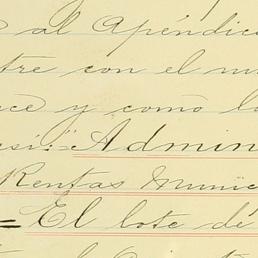 al Apéndic
tre con el
ce y como l
así: "Admin
Rentas Munic
= El lote de